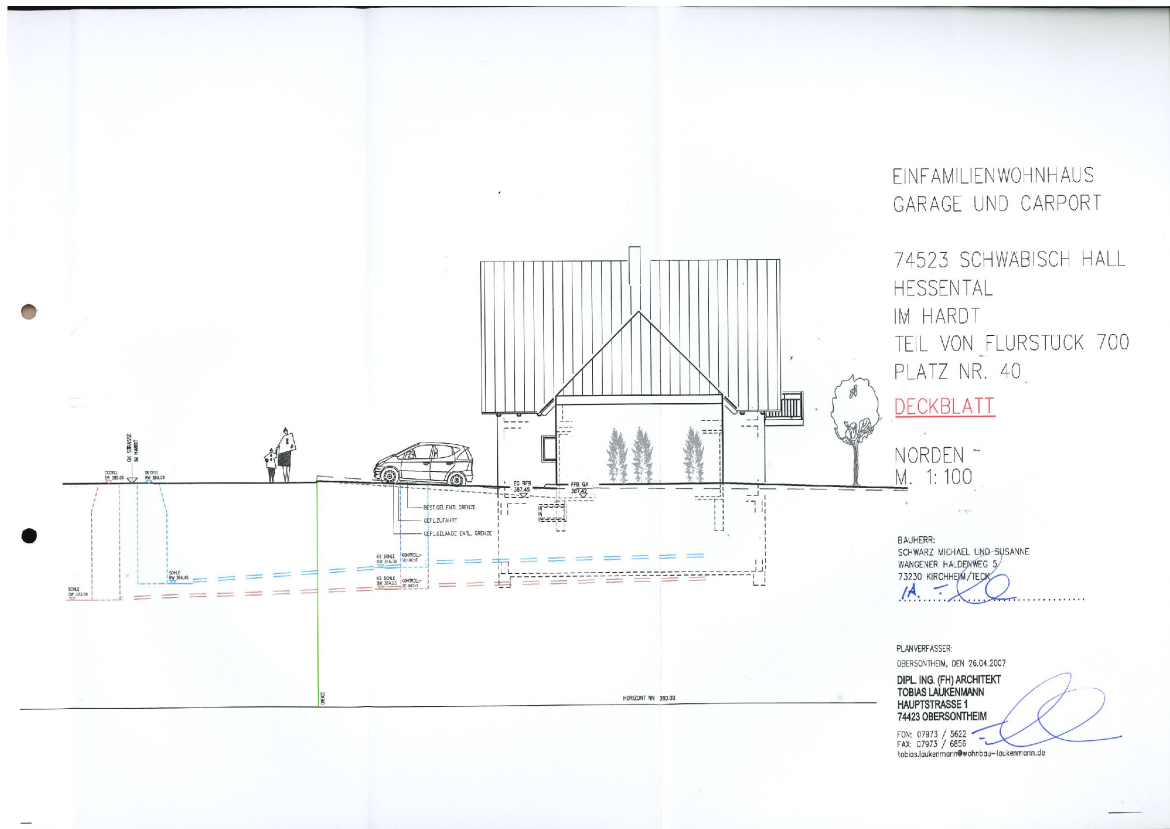 EINFAMILIENWOHNHAUS
GARAGE UND CARPORT
74523 SCHWÄBISCH HALL
HESSENTAL
IM HARDT
TEIL VON FLURSTÜCK 700
PLATZ NR. 40
DECKBLATT
NORDEN
M. 1:100
BAUHERR:
SCHWARZ MICHAEL UND SUSANNE
WANGENER HALDENWEG 5
73230 KIRCHHEIM/TECK
PLANVERFASSER:
OBERSONTHEIM, DEN 26.04.2007
DIPL. ING. (FH) ARCHITEKT
TOBIAS LAUKENMANN
HAUPTSTRASSE 1
74423 OBERSONTHEIM
FON: 07973 / 5622
FAX: 07973 / 6856
tobias.laukenmann@wohnbau-laukenmann.de
OK STRASSE
IM HARDT
DECKEL
DECKEL
EG RFB
387.45
FFB GA
BEST.GELENTL.GRENZE
GEPL.ZUFAHRT
GEPL.GELANDE ENTL. GRENZE
KS SOHLE
KONTROLL-
KS SOHLE
KONTROLL-
SOHLE
SOHLE
GRENZE
HORIZONT NN: 380.00